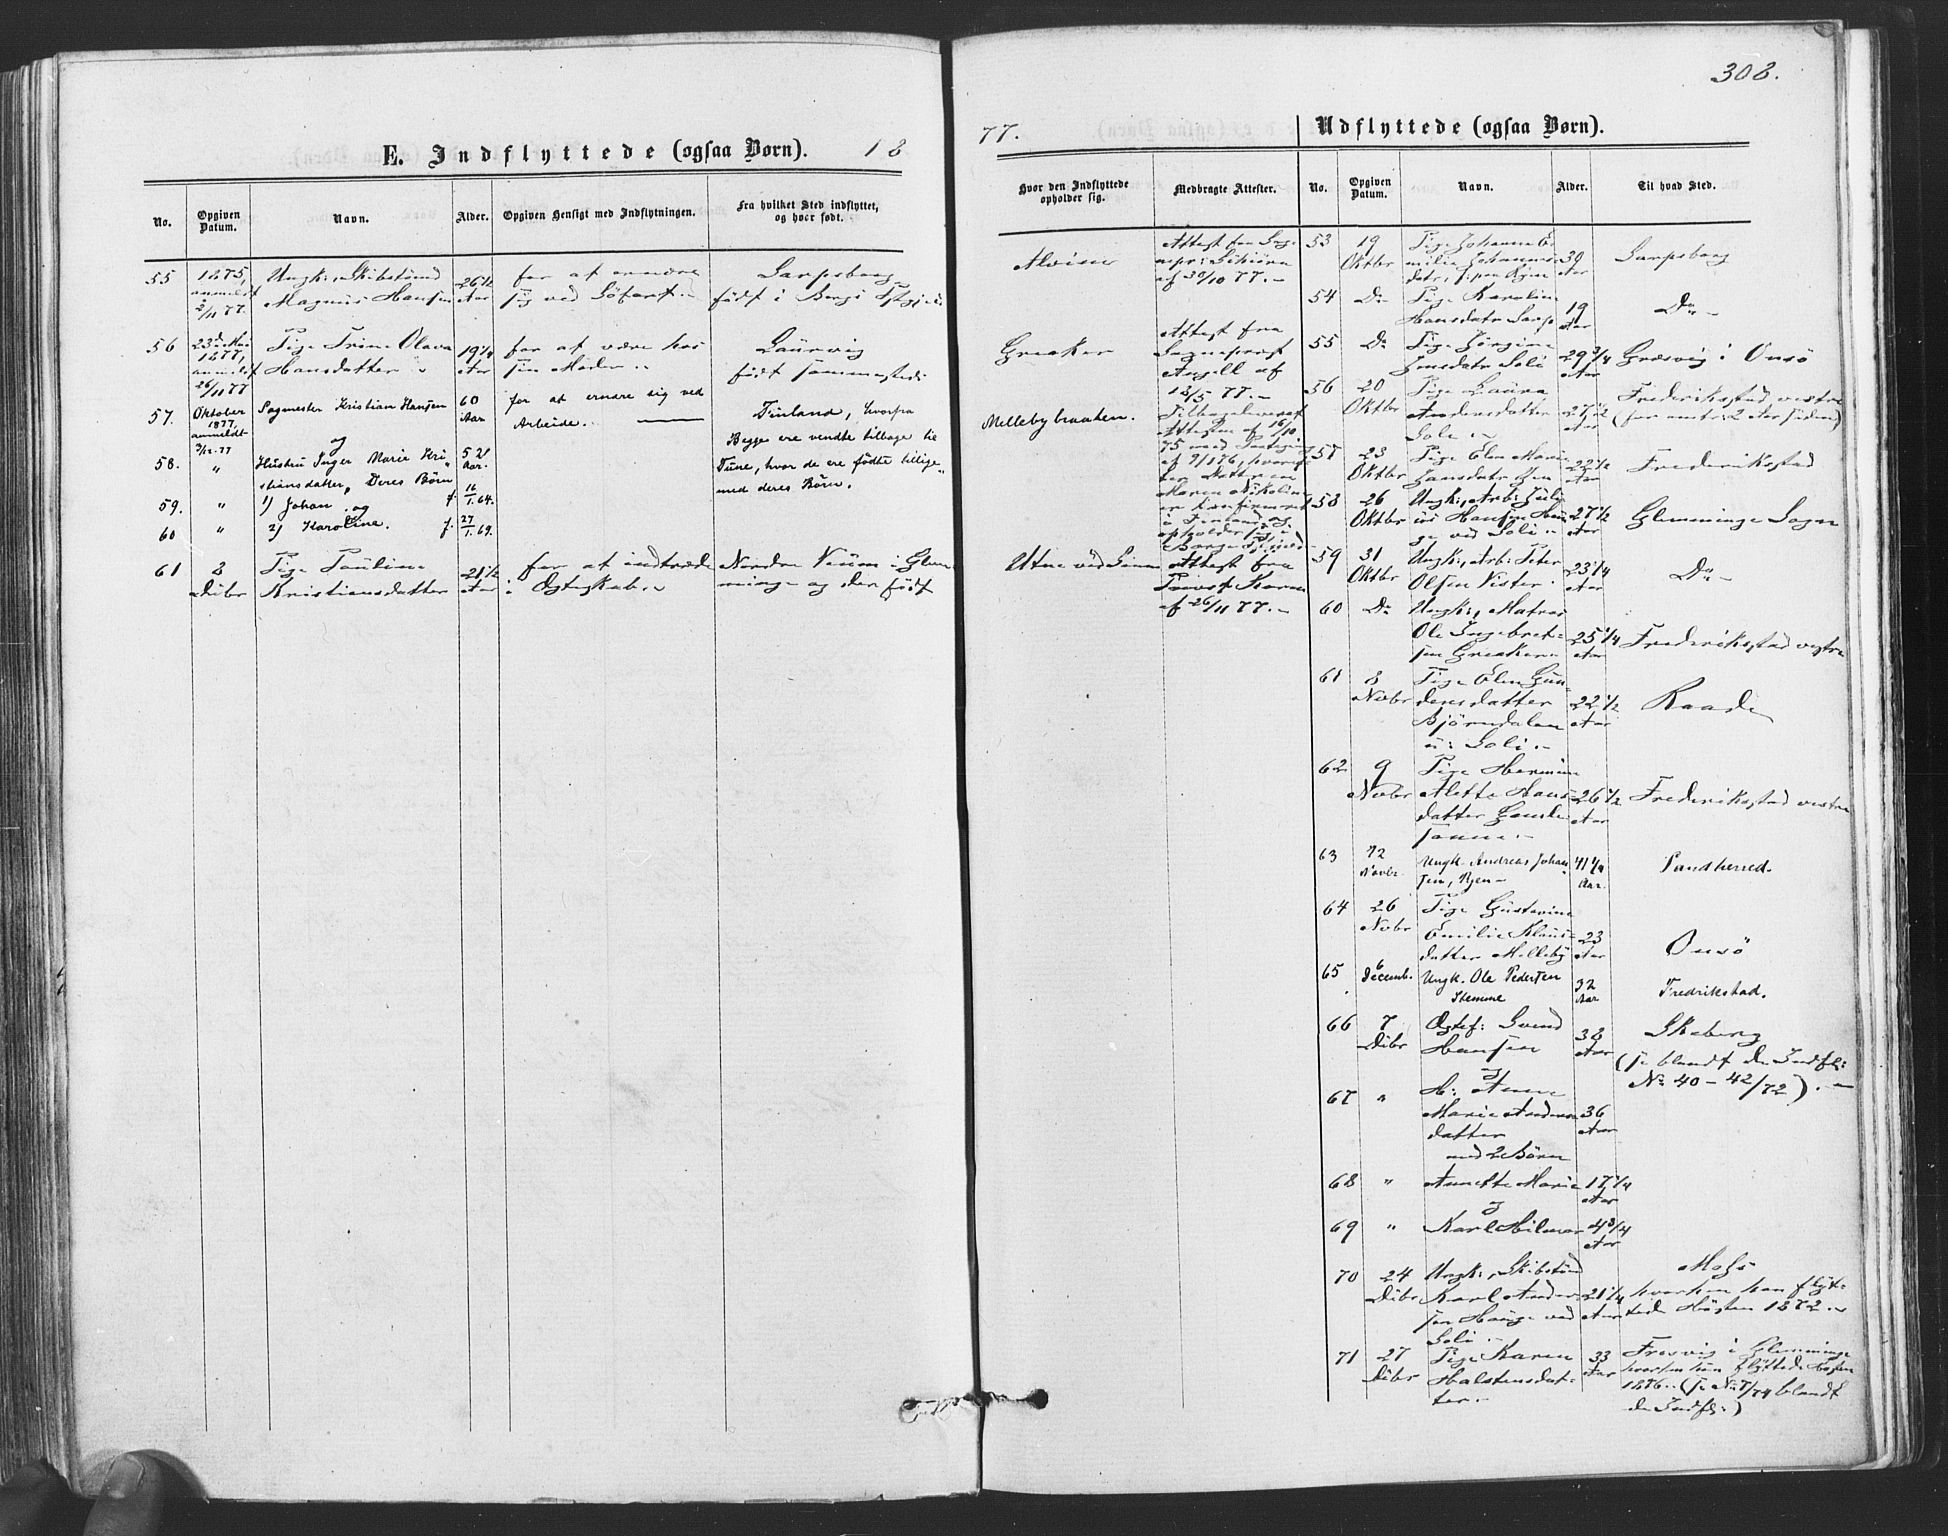 308.
E. Indflyttede (ogsaa Børn). 18
77.
Udflyttede (ogsaa Børn).
No.
Opgiven Datum.
Navn.
Alder.
Opgiven Hensigt med Indflytningen.
Fra hvilket Sted indflyttet, og hvor født.
Hvor den Indflyttede opholder sig.
Medbragte Attester.
No.
Opgiven Datum.
Navn.
Alder.
Til hvad Sted.
55
1875, anmeldt 2/11 77.
Ungk:, Skibstømd
Magnus Hansen
26 1/2 Aar
for at ernære
sig ved Søfart.
Sarpsborg
født i
Alvim
Attest fra
af 30/10 77.
56
23de Mai 1877, anmeldt 26/11 77
Pige Trine Olava
Hansdatter
19 1/4 Aar
for at være hos
sin Moder
Laurvig
født sammesteds
Greaker
Attest fra
Sogneprest
Angell af
18/5 77.
57.
Oktober 1877, anmeldt 3/12 77
Sagmester Kristian Hansen
og
60 Aar
for at ernære sig ved
Arbeide.
Finland, hvorfra
Begge ere vendte tilbage til
Tune, hvor de ere fødte tillige
med deres Børn.
Mellebybraaten.
58.
"
Hustru Inger Marie Kri
stiansdatter, Deres Børn
Aar.
59.
"
1) Johan og
f. 16/1. 64.
60
"
2) Karoline.
f. 27/1. 69.
61
8 Dcbr
Pige Pauline
Kristiansdatter
21 1/2 Aar
for at indtræde
i Ægteskab.
Nordre Veum i Glem
minge og der født
Attest fra
af 26/11 77.
53
19 Oktbr
Pige Johanne E
milie Johannes
datr,
39 Aar
Sarpsborg
54
Do
Pige Karoline
Hansdatr Sarp
19 Aar
Do
55
Do
Pige Jørgine
Jensdatr Soli
29 3/4 Aar
Græsvig i Onsø
56
20 Oktbr
Pige Laura
Andersdatter
Soli
27 1/2 Aar
Frederikstad vestre
(for omtr: 2 Aar siden)
57
23 Oktbr
Pige Elen Marie
Hansdatr
22 1/2 Aar
Frederikstad
58
26 Oktbr
Ungk:, Arb: Juli
us Hansen Hau
ge ved Soli
27 1/2 Aar
Glemminge Sogn
59
31 Oktbr
Ungk:, Arb: Peter
Olsen Vister
23 1/4 Aar
Do
60
Do
Ungk:, Matros
Ole Ingebret
sen Greaker
25 1/4 Aar
Frederikstad vestre
61
8 Novbr
Pige Elen Gun
dersdatter
Bjørndalen
u: Soli
22 1/2 Aar
Raade
62
9 Novbr
Pige Hermine
Alette Hans
datter
26 1/2 Aar
Frederikstad vestre
63
12 Novbr.
Ungk. Andreas Johan
sen, Ryen
41 1/4 Aar.
Sandherred.
64
26 Novbr
Pige Gustavine
Emilie Klaus
datter Melleby
23 Aar
Onsø
65
6 Decemb.
Ungk. Ole Pedersen
Stemme
32 Aar
Fredrikstad.
66
7 Dcbr
Ægtef: Svend
Hansen
og
38 Aar
Skeberg
(se blandt de Indfl:
No 40 - 42/72).
67
"
H: Anne
Marie Anders
datter
med 2 Børn
36 Aar
68
"
Annette Marie
og
17 1/4 Aar
69
"
Karl Hilmar
4 3/4 Aar
70
24 Dcbr
Ungk:, Skibstømd
Karl Ander
sen Hauge ved
Soli
21 1/4 Aar
Moss
hvorhen han flyt
tede Høsten 1872
71
27 Dcbr
Pige Karen
Halstensdat
ter.
33 Aar
Tresvig i Glemminge
hvorhen hun flyttede Høsten
1876. (se No 7/74 blandt
de Indfl:)